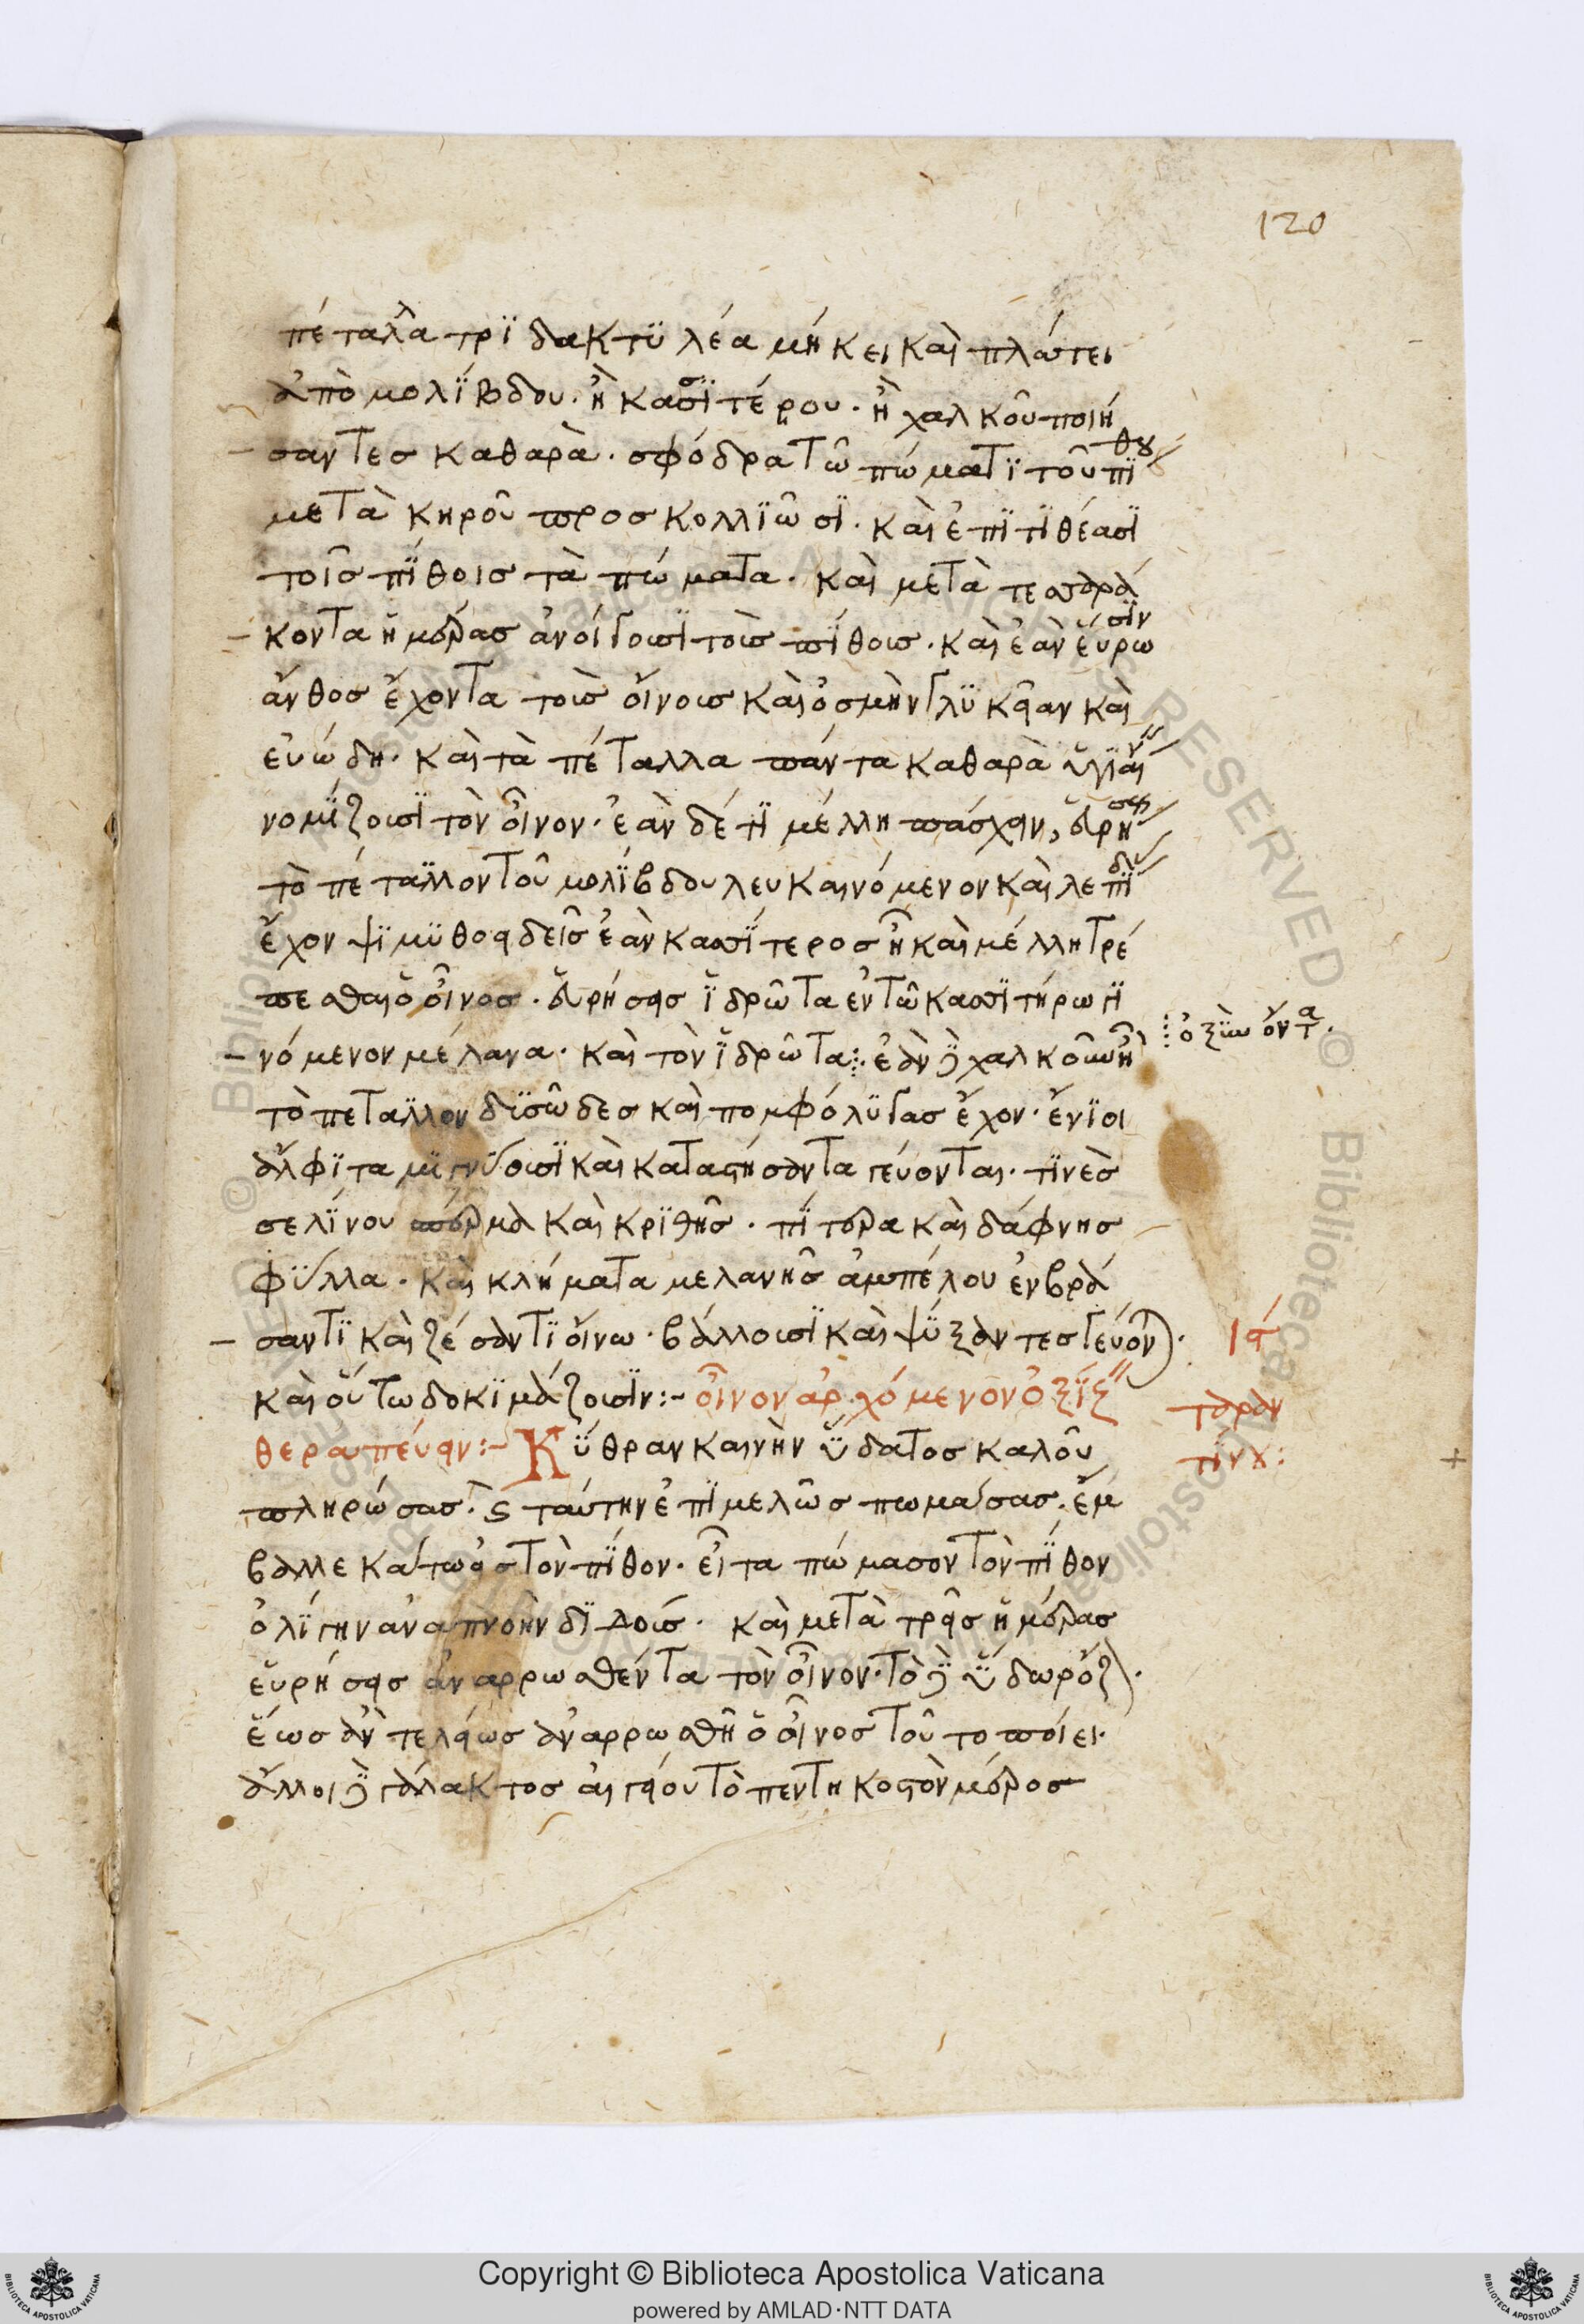 120
πέταλλα τρϊδακτϋλέα μήκει καὶ πλάτει
ἀπὸ μολΐβδου. ἢ κασσϊτέρου. ἢ χαλκοῦ ποιή
σαντες καθαρὰ. σφόδρα τῶ πώματϊ τοῦ πίθου
μετὰ κηροῦ προσκολλϊῶσϊ. καὶ ἐπϊτϊθέασϊ
τοῖς πΐθοις τὰ πώματα. καὶ μετὰ τεσσαρά
κοντα ἡμέρας ἀνοίγουσϊ τοὺς πΐθους. καὶ ἐὰν εὕρωσϊν
ἄνθος ἔχοντα τοὺς οἴνους καὶ ὀσμὴν γλϋκεῖαν καὶ
εὐώδη. καὶ τὰ πέταλλα πάντα καθαρὰ ὑγιαίν
νομΐζουσϊ τὸν οἶνον. ἐὰν δέ τϊ μέλλη πάσχειν, εὑρήσεις
τὸ πέταλλον τοῦ μολΐβδου λευκαινόμενον καὶ λεπΐδας
ἔχον ψϊμϋθοειδεῖς ἐὰν κασσΐτερος ἦ καὶ μέλλη τρέ
πεσθαι ὁ οἶνος. εὑρήσεις ἵδρῶτα ἐν τῶ κασσϊτήρω γϊ
νόμενον μέλανα. καὶ τὸν ἵδρῶτα ἐὰν δὲ χαλκοῦν ἦ
ὀξΐζοντα.
τὸ πεταλλον δϊσῶδες καὶ πομφόλϋγας ἔχον. ἔνϊοι
ἄλφϊτα μϊγνύουσϊ καὶ καταστήσαντα γεύονται. τϊνὲς
σελΐνου σπέρμα καὶ κρϊθῆς. πΐτερα καὶ δάφνης
φΰλλα. καὶ κλήματα μελανῆς ἀμπέλου ἐνβρά
σαντϊ καὶ ζέσαντϊ οἴνω. βάλλουσϊ καὶ ψΰξαντες γεύον).
ις
καὶ οὕτω δοκϊμάζουσϊν:- οἶνον ἀρχόμενον ὀξΐζ
θεραπεύειν:- Κΰθραν καινὴν ὕδατος καλοῦ
ταραν
τΐνχ:
πληρώσας. ϛ ταύτην ἐπϊμελῶς πωμάσας. ἔμ
βαλλε κάτω εἰς τὸν πΐθον. εἶτα πώμασον τὸν πΐθον
ὀλΐγην ἀναπνοὴν δϊδούς. καὶ μετὰ τρεῖς ἡμέρας
εὑρήσεις ἀναρρωσθέντα τὸν οἶνον. τὸ δὲ ὕδωρ ὄζ).
ἕως ἂν τελείως ἀναρρωσθῆ ὁ οἶνος τοῦτο ποίει.
ἄλλοι δὲ γάλακτος αἰγείου τὸ πεντηκοστὸν μέρος
Copyright © Biblioteca Apostolica Vaticana
powered by AMLAD·NTT DATA